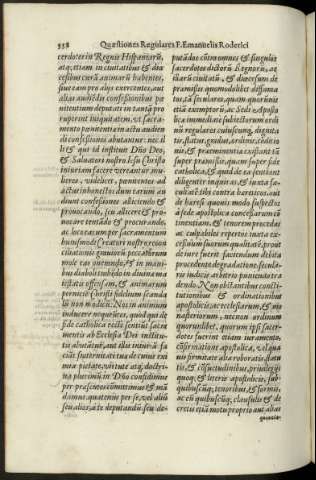 338 Quæstiones Regulares F. Emanuelis Roderici
cerdotes in Regnis Hispaniarũ,
atq; etiam in ciuitatibus & diœ
cesibus curã animarũ habentes,
siue eam pro alijs exercentes, aut
alias audiẽdis confessionibus pœ
nitentium deputati in tantã pro
ruperint iniquitatem, vt sacra-
mento pœnitentiæ in actu audien
di confessiones abutantur: nec il
li & qui id instituit Dño Deo,
& Saluatori nostro Iesu Christo
iniuriam facere vereantur mu-
lieres, videlicet, pœnitentes ad
actus inhonestos dum earum au
diunt confessiones alliciendo &
prouocando, seu allicere & pro-
uocare tentãdo & procurando,
ac loco earum per sacramentum
huiusmodi Creatori nostro recon
ciliationis grauiori peccatorum
mole eas onerando, & in mani-
bus diaboli tradẽdo in diuinæ ma
iestatis offensam, & animarum
perniciẽ Christi fidelium scanda
lũ non modicũ: Nos in animum
inducere nequiuimus, quòd qui de
fide catholica rectè sentiũt sacra
mentis ab Ecclesia Dei institu-
tis abutãtur,
fraternitati tuæ de cuius exi
mia pietate, virtute atq; doctri-
na plurimũ in Dño confidimus
per præsentes committimus & mã
damus quatenus per te, vel aliũ
seu alios, à te deputandũ seu de-
putãdos contra omnes & singulos
sacerdotes dictorũ Regnorũ, ac
illarũ ciuitatũ, & diœcesum de
præmissis quomodolibet diffama
tos, tã seculares quàm quorumuis
exemptorũ ac Sedi Aposto
licæ immediatè subiectorum ordi
nũ regulares cuiuscumq; dignita
tis, status, gradus, ordinis, cõditio
nis & præeminentiæ existant tã
super præmissis, quàm super fide
catholica, & quid de ea sentiant
diligenter inquiras, & iuxta fa-
cultatẽ tibi contra hæreticos, aut
de hæresi quouis modo suspectos
à sede apostolica concessarum cõ
tinentiam, & tenorem procedas
ac culpabiles repertos iuxta ex-
cessuum suorum qualitatẽ, prout
de iure fuerit faciendum debita
præcedente degradatione, seculá-
ris iudicis arbitrio puniendos tra
dendo. Non obstantibus consti-
tutionibus & ordinationibus
apostolicis, ac ecclesiarum, & mo
nasteriorum, necnon ordinum
quorumlibet, quorum ipsi sacer-
dotes fuerint etiam iuramento,
cõfirmatione apostolica, vel qua
uis firmitate alia roboratis statu
tis, & cõsuetudinibus, priuilegijs
quoq; & literis apostolicis, sub-
quibuscũq; tenoribus, & formis,
ac cũ quibuscũq; clausulis & de
cretis etiã motu proprio aut alias